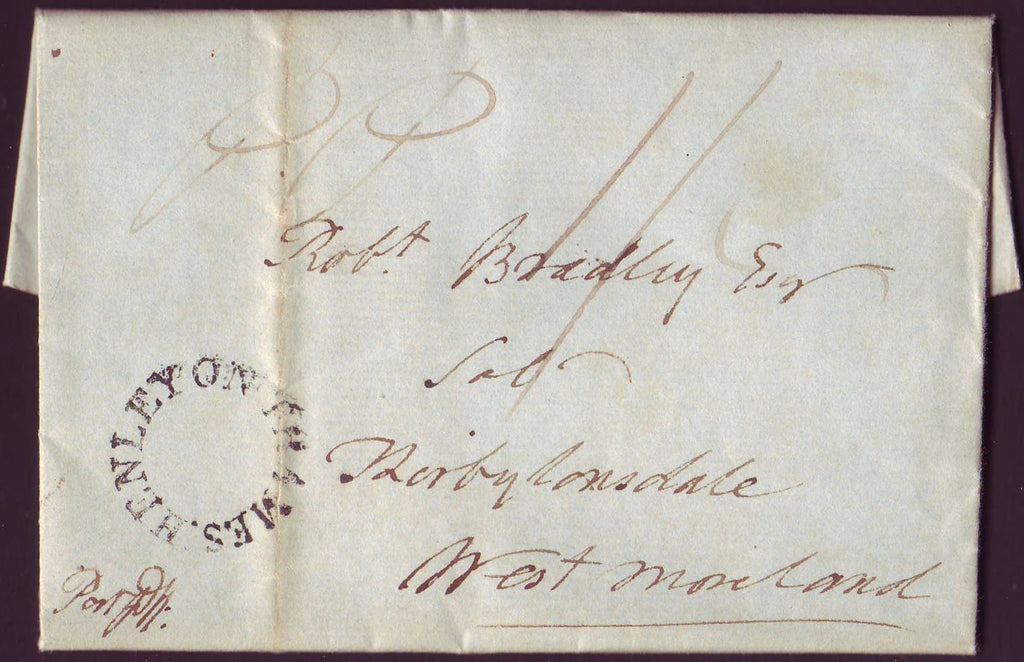 11
Robt. Bradley Esqr
Solr
Kirbylonsdale
West moreland
HENLEY ON THAMES.
Post Pd.